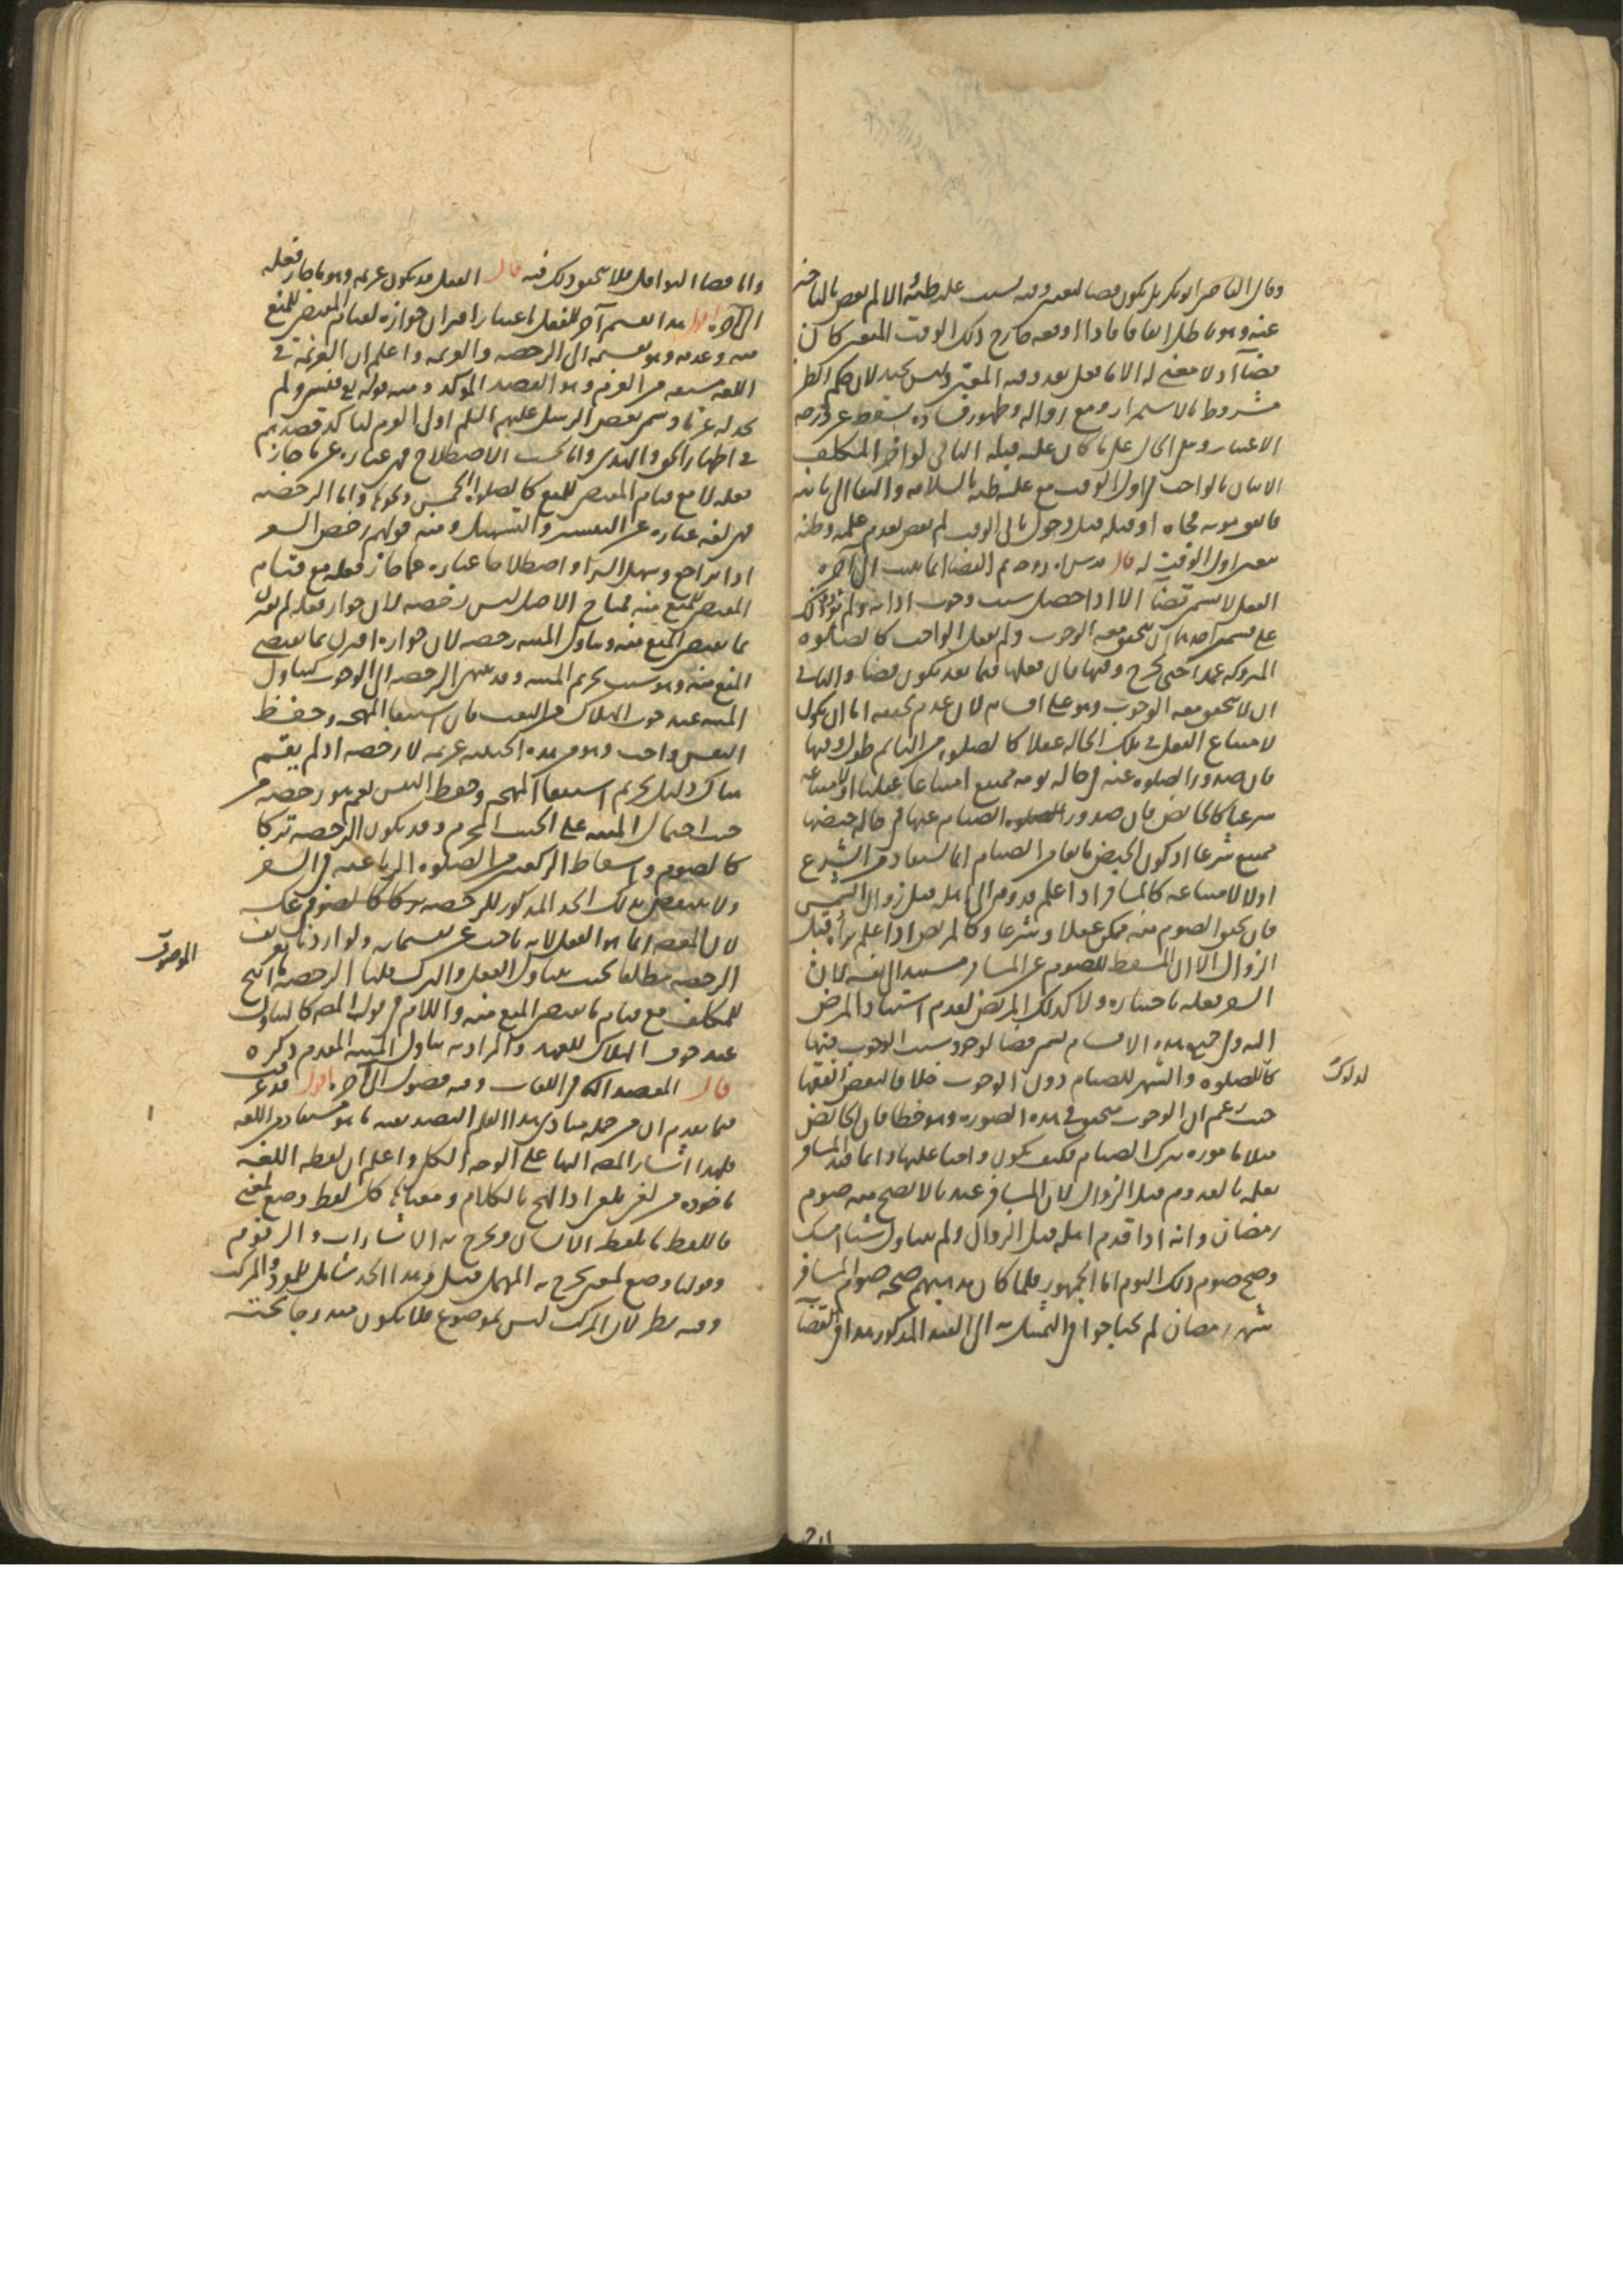 وقال القاضي ابو بكر بل يكون قضا لتعين وقته بسبب غلبة ظنه الا لم يعص بالتاخير
عنه وهو باطل اتفاقا فاذا اوقعه خارج ذلك الوقت المتعين كان
قضآ اذ لا معنى له الا ما فعل بعد وقته المعين وليس بجيد لان حكم الظن
مشروط بالاستمرار ومع زواله وظهور فساده يسقط عن درجة
الاعتبار وبقي الحال على ما كان عليه قبله الثاني لو اخر المكلف
الاتيان بالواجب في اول الوقت مع غلبة ظنه بالسلامة
فاتفق موته فجاه او قتله قبل دخول ثاني الوقت لم يعص لعدم علمه وظنه
تعين اول الوقت له قال قدس الله روحه ثم القضا انما يجب الى آخره
الفعل لا يسمى قضآ الا اذا حصل سبب وجوب ادائه ولم يؤد وذلك
على قسمين احدهما ان يتحقق معه الوجوب ولم يفعل الواجب كالصلوه
المتروكه عمدا حتى خرج وقتها فان فعلها فيما بعد يكون قضا والثاني
ان لا يتحقق معه الوجوب وهو على اقسام لان عدم تحققه اما ان يكون
لامتناع الفعل في تلك الحاله عقلا كالصلوه من النائم طول وقتها
فان صدور الصلوه عنه في حالة نومه ممتنع امتناعا عقليا او لامتناعه
شرعا كالحائض فان صدور الصيام عنها في حاله حيضها
ممتنع شرعا اذ كون الحيض مانعا من الصيام انما استفاد من الشرع
او لا لامتناعه كالمسافر اذا علم قدومه الى اهله قبل زوال الشمس
فان تحقق الصوم منه ممكن عقلا وشرعا وكالمريض اذا علم برأه قبل
الزوال الا ان المسقط للصوم عن المسافر مستند الى نفسه لان
السفر بفعله باختياره ولا كذلك المريض لعدم استناد المرض
اليه وفي جميع هذه الاقسام يسمى قضا لوجود سبب الوجوب فيها
كالدلوك للصلوه والشهر للصيام دون الوجوب خلافا لبعض الفقها
حيث زعم ان الوجوب متحقق في هذه الصوره وهو خطا فان الحائض
مثلا مامورة بترك الصيام فكيف يكون واجبا عليها وانما قيد المسافر
بعلمه بالقدوم قبل الزوال لان المسافر عندنا لا يصح منه صوم
رمضان وانه اذا قدم اهله قبل الزوال ولم يتناول شيئا امسك
وصح صوم ذلك اليوم اما الجمهور فلما كان مذهبهم صحه صوم المسافر
شهر رمضان لم يحتاجوا في التمثيل به الى القيد المذكور هذا في القضآ
لدلوك
واما قضا النوافل فلا يتحقق ذلك فيه قال الفعل قد يكون عزيمه وهو ما جاز فعله
الى آخره اقول هذا تقسيم آخر للفعل باعتبار اقتران جوازه بقيام المقتضي للمنع
منه وعدمه وهو تقسيمه الى الرخصه والعزيمه واعلم ان العزيمة في
اللغه مشتقه من العزم وهو القصد المؤكد ومنه قوله تع فنسي ولم
نجد له عزما وسمي بعض الرسل عليهم السلم اولي العزم لتاكد قصدهم
في اظهار الحق والهدى واما بحسب الاصطلاح فهي عباره عن ما جاز
فعله لا مع قيام المقتضي للمنع كالصلوات الخمس ونحوها واما الرخصه
فهي لغه عباره عن التيسير والتسهيل ومنه قولهم رخص السعر
اذا تراجع وسهل الشراء واصطلاحا عباره عما جاز فعله مع قيام
المقتضي للمنع منه فمباح الاصل ليس رخصه لان جواز فعله لم يقترن
بما يقتضي المنع منه وتناول الميته رخصه لان جوازه اقترن بما يقتضي
المنع منه وهو سبب تحريم الميته وقد تنتهي الرخصه الى الوجوب كتناول
الميته عند خوف الهلاك من التعب فان استبقا المهجه وحفظ
النفس واجب وهو من هذه الحيثيه عزيمه لا رخصه اذ لم يقم
هناك دليل تحريم استبقا المهجه وحفظ النفس نعم هو رخصه من
حيث اشتمال الميته على الخبث المحرم وقد يكون الرخصه تركا
كالصوم واسقاط الركعتين من الصلوه الرباعيه في السفر
ولا ينتقض بذلك الحد المذكور للرخصه
لان المقصد انما هو الفعل لانه باحث عن تقسيماته ولو اردنا تعريف
الرخصه مطلقا بحيث يتناول الفعل والترك قلنا الرخصه ما ابيح
للمكلف مع قيام ما يقتضي المنع منه واللام في قول المصنف كتناول
عند خوف الهلاك للعهد والمراد به تناول الميته المتقدم ذكره
قال المقصد الثاني في اللغات وفيه فصول الى آخره اقول قد عرفت
فيما تقدم ان من جمله مبادى هذا العلم التصديقيه ما هو مستفاد من اللغه
فلهذا اشار المصنف اليها على الوجه الكلي واعلم ان لفظه اللغه
ماخوذه من لغي يلغى اذا لهج بالكلام ومعناها كل لفظ وضع لمعنى
فاللفظ ما يلفظه الانسان ويخرج به الاشارات والرقوم
وقولنا وضع لمعنى يخرج به المهمل قيل وهذا الحد شامل للمفرد والمركب
وفيه نظر لان المركب ليس بموضوع فلا يكون مندرجا تحت
الموصوف